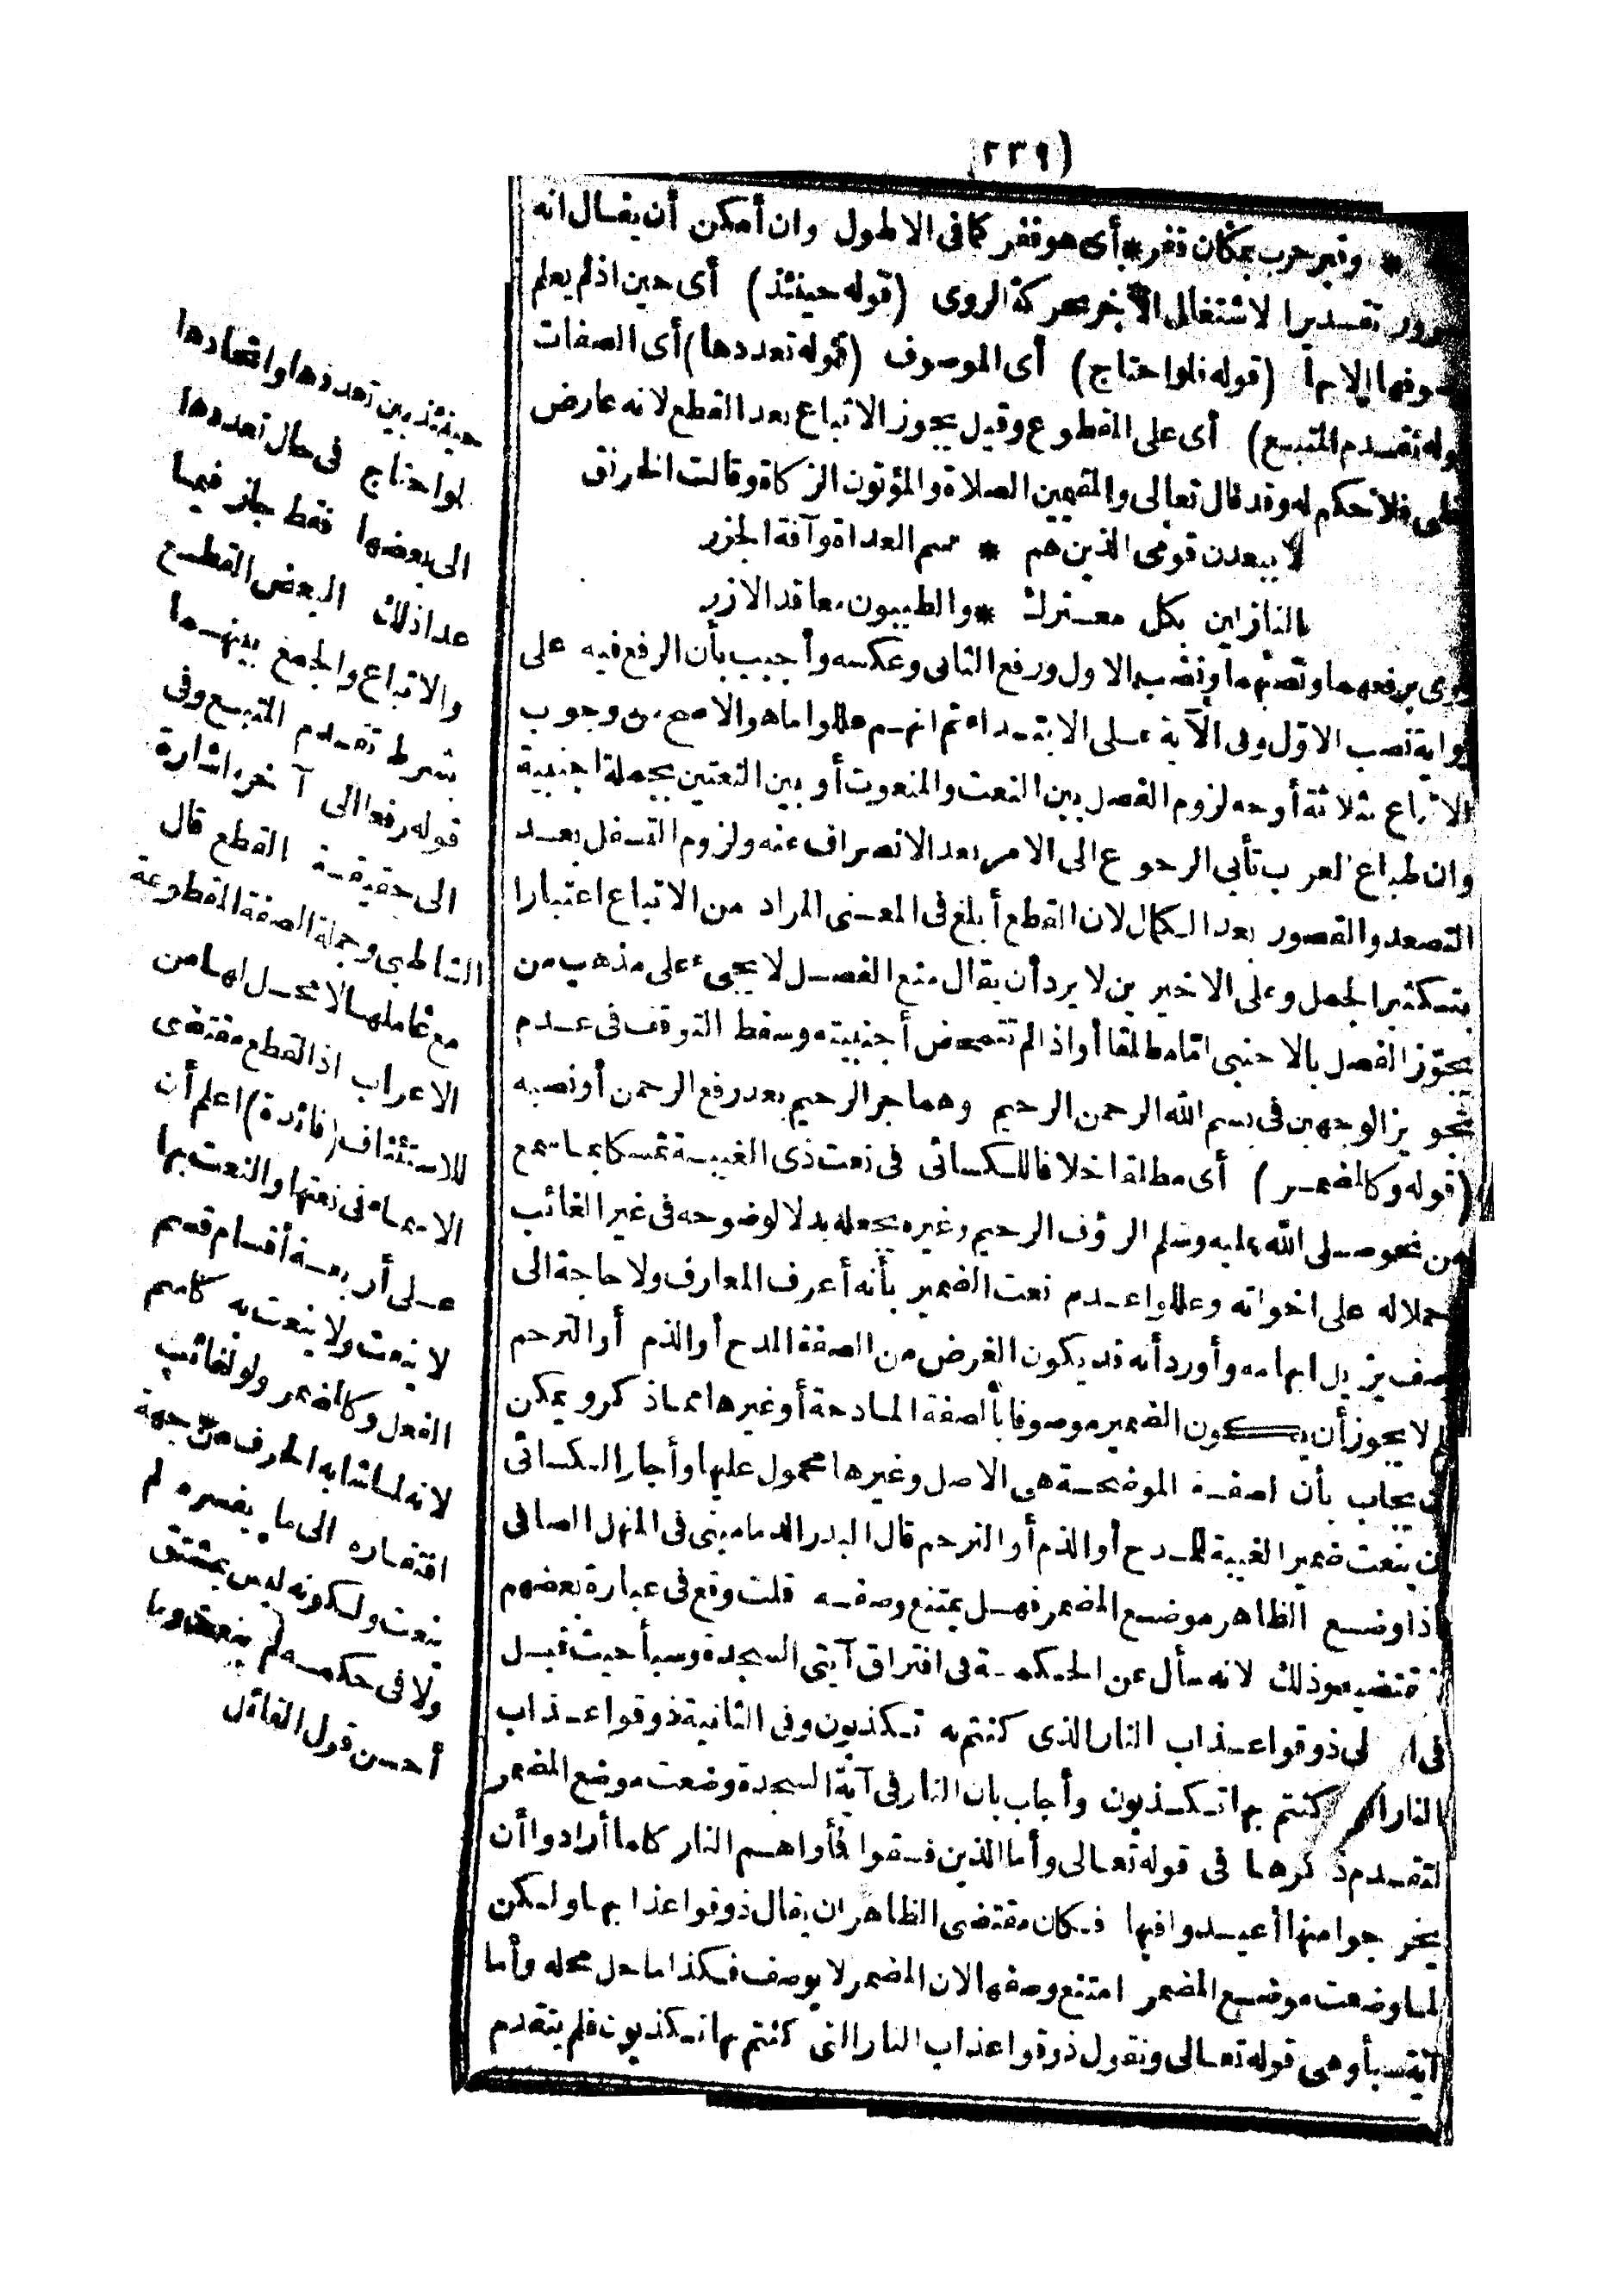 (٢٣٩)
* وقبر حرب بمكان قفر * أى هو قفر كما فى الاطول وان أمكن أن يقال انه
تقديرا لاشتغال الآخر بحركة الروى (قوله حينئذ) أى حين اذ لم يعلم
الا بها (قوله فلو احتاج) أى الموصوف (قوله تعددها) أى الصفات
تقدم المتبع) أى على المقطوع وقيل يجوز الاتباع بعد القطع لانه عارض
فلا حكم له وقد قال تعالى والمقيمين الصلاة والمؤتون الزكاة وقالت الخرنق
لا يبعدن قومى الذين هم * سم العداة وآفة الجزر
النازلين بكل معترك * والطيبون معاقد الازر
يروى برفعهما ونصبهما وبنصب الاول ورفع الثانى وعكسه وأجيب بأن الرفع فيه على
رواية نصب الاول وفى الآية على الابتداء ثم انهم عللوا ما هو الاصح من وجوب
الاتباع بثلاثة أوجه لزوم الفصل بين النعت والمنعوت أو بين النعتين بجملة أجنبية
وان طباع العرب تأبى الرجوع الى الامر بعد الانصراف عنه ولزوم التسفل بعد
التصعد والقصور بعد الكمال لان القطع أبلغ فى المعنى المراد من الاتباع اعتبارا
بتكثير الجمل وعلى الاخيرين لا يرد أن يقال منع الفصل لا يجىء على مذهب من
يجوّز الفصل بالاجنبى امّا مطلقا أو اذا لم تتمحض أجنبيته وسقط التوقف فى عدم
تجويز الوجهين فى بسم الله الرحمن الرحيم وهما جر الرحيم بعد رفع الرحمن أو نصبه
(قوله وكالضمير) أى مطلقا خلافا للكسائى فى نعت ذى الغيبة تمسكا بما سمع
من نحو صلى الله عليه وسلم الرؤف الرحيم وغيره يجعله بدلا لوضوحه فى غير الغائب
حملا له على اخوانه وعللوا عدم نعت الضمير بأنه أعرف المعارف ولا حاجة الى
وصف يزيل ابهامه وأورد أنه قد يكون الغرض من الصفة المدح أو الذم أو الترحم
لم لا يجوز أن يكون الضمير موصوفا بالصفة المادحة أو غيرها مما ذكر ويمكن
أن يجاب بأن الصفة الموضحة هى الاصل وغيرها محمول عليها وأجاز الكسائى
أن ينعت ضمير الغيبة للمدح أو الذم أو الترحم قال البدر الدمامينى فى المنهل الصافى
اذا وضع الظاهر موضع المضمر فهل يمتنع وصفه قلت وقع فى عبارة بعضهم
ما يقتضيه وذلك لانه سأل عن الحكمة فى افتراق آيتى السجدة وسبأ حيث قيل
فى الاولى ذوقوا عذاب النار الذى كنتم به تكذبون وفى الثانية ذوقوا عذاب
النار التى كنتم بها تكذبون وأجاب بان النار فى آية السجدة وضعت موضع المضمر
لتقدم ذكرها فى قوله تعالى وأما الذين فسقوا فمأواهم النار كلما أرادوا أن
يخرجوا منها أعيدوا فيها فكان مقتضى الظاهر ان يقال ذوقوا عذابها ولكن
لما وضعت موضع المضمر امتنع وصفها لان المضمر لا يوصف فكذا ما حل محله وأما
آية سبأ وهى قوله تعالى ونقول ذوقوا عذاب النار التى كنتم بها تكذبون فلم يتقدم
حينئذ بين تعددها واتحادها
لو احتاج فى حال تعددها
الى بعضها فقط جاز فيما
عدا ذلك البعض القطع
والاتباع والجمع بينهما
بشرط تقدم المتبع وفى
قوله رفعا الى آخره اشارة
الى حقيقة القطع قال
الشاطبى وجملة الصفة المقطوعة
مع عاملها لا محل لها من
الاعراب اذ القطع مقتضى
للاستئناف (فائدة) اعلم أن
الاسماء فى نعتها والنعت بها
على أربعة أقسام قسم
لا ينعت ولا ينعت به كاسم
الفعل وكالضمير ولو لغائب
لانه لما شابه الحرف من جهة
افتقاره الى ما يفسره لم
ينعت ولكونه ليس بمشتق
ولا فى حكمه لم ينعت وما
أحسن قول القائل